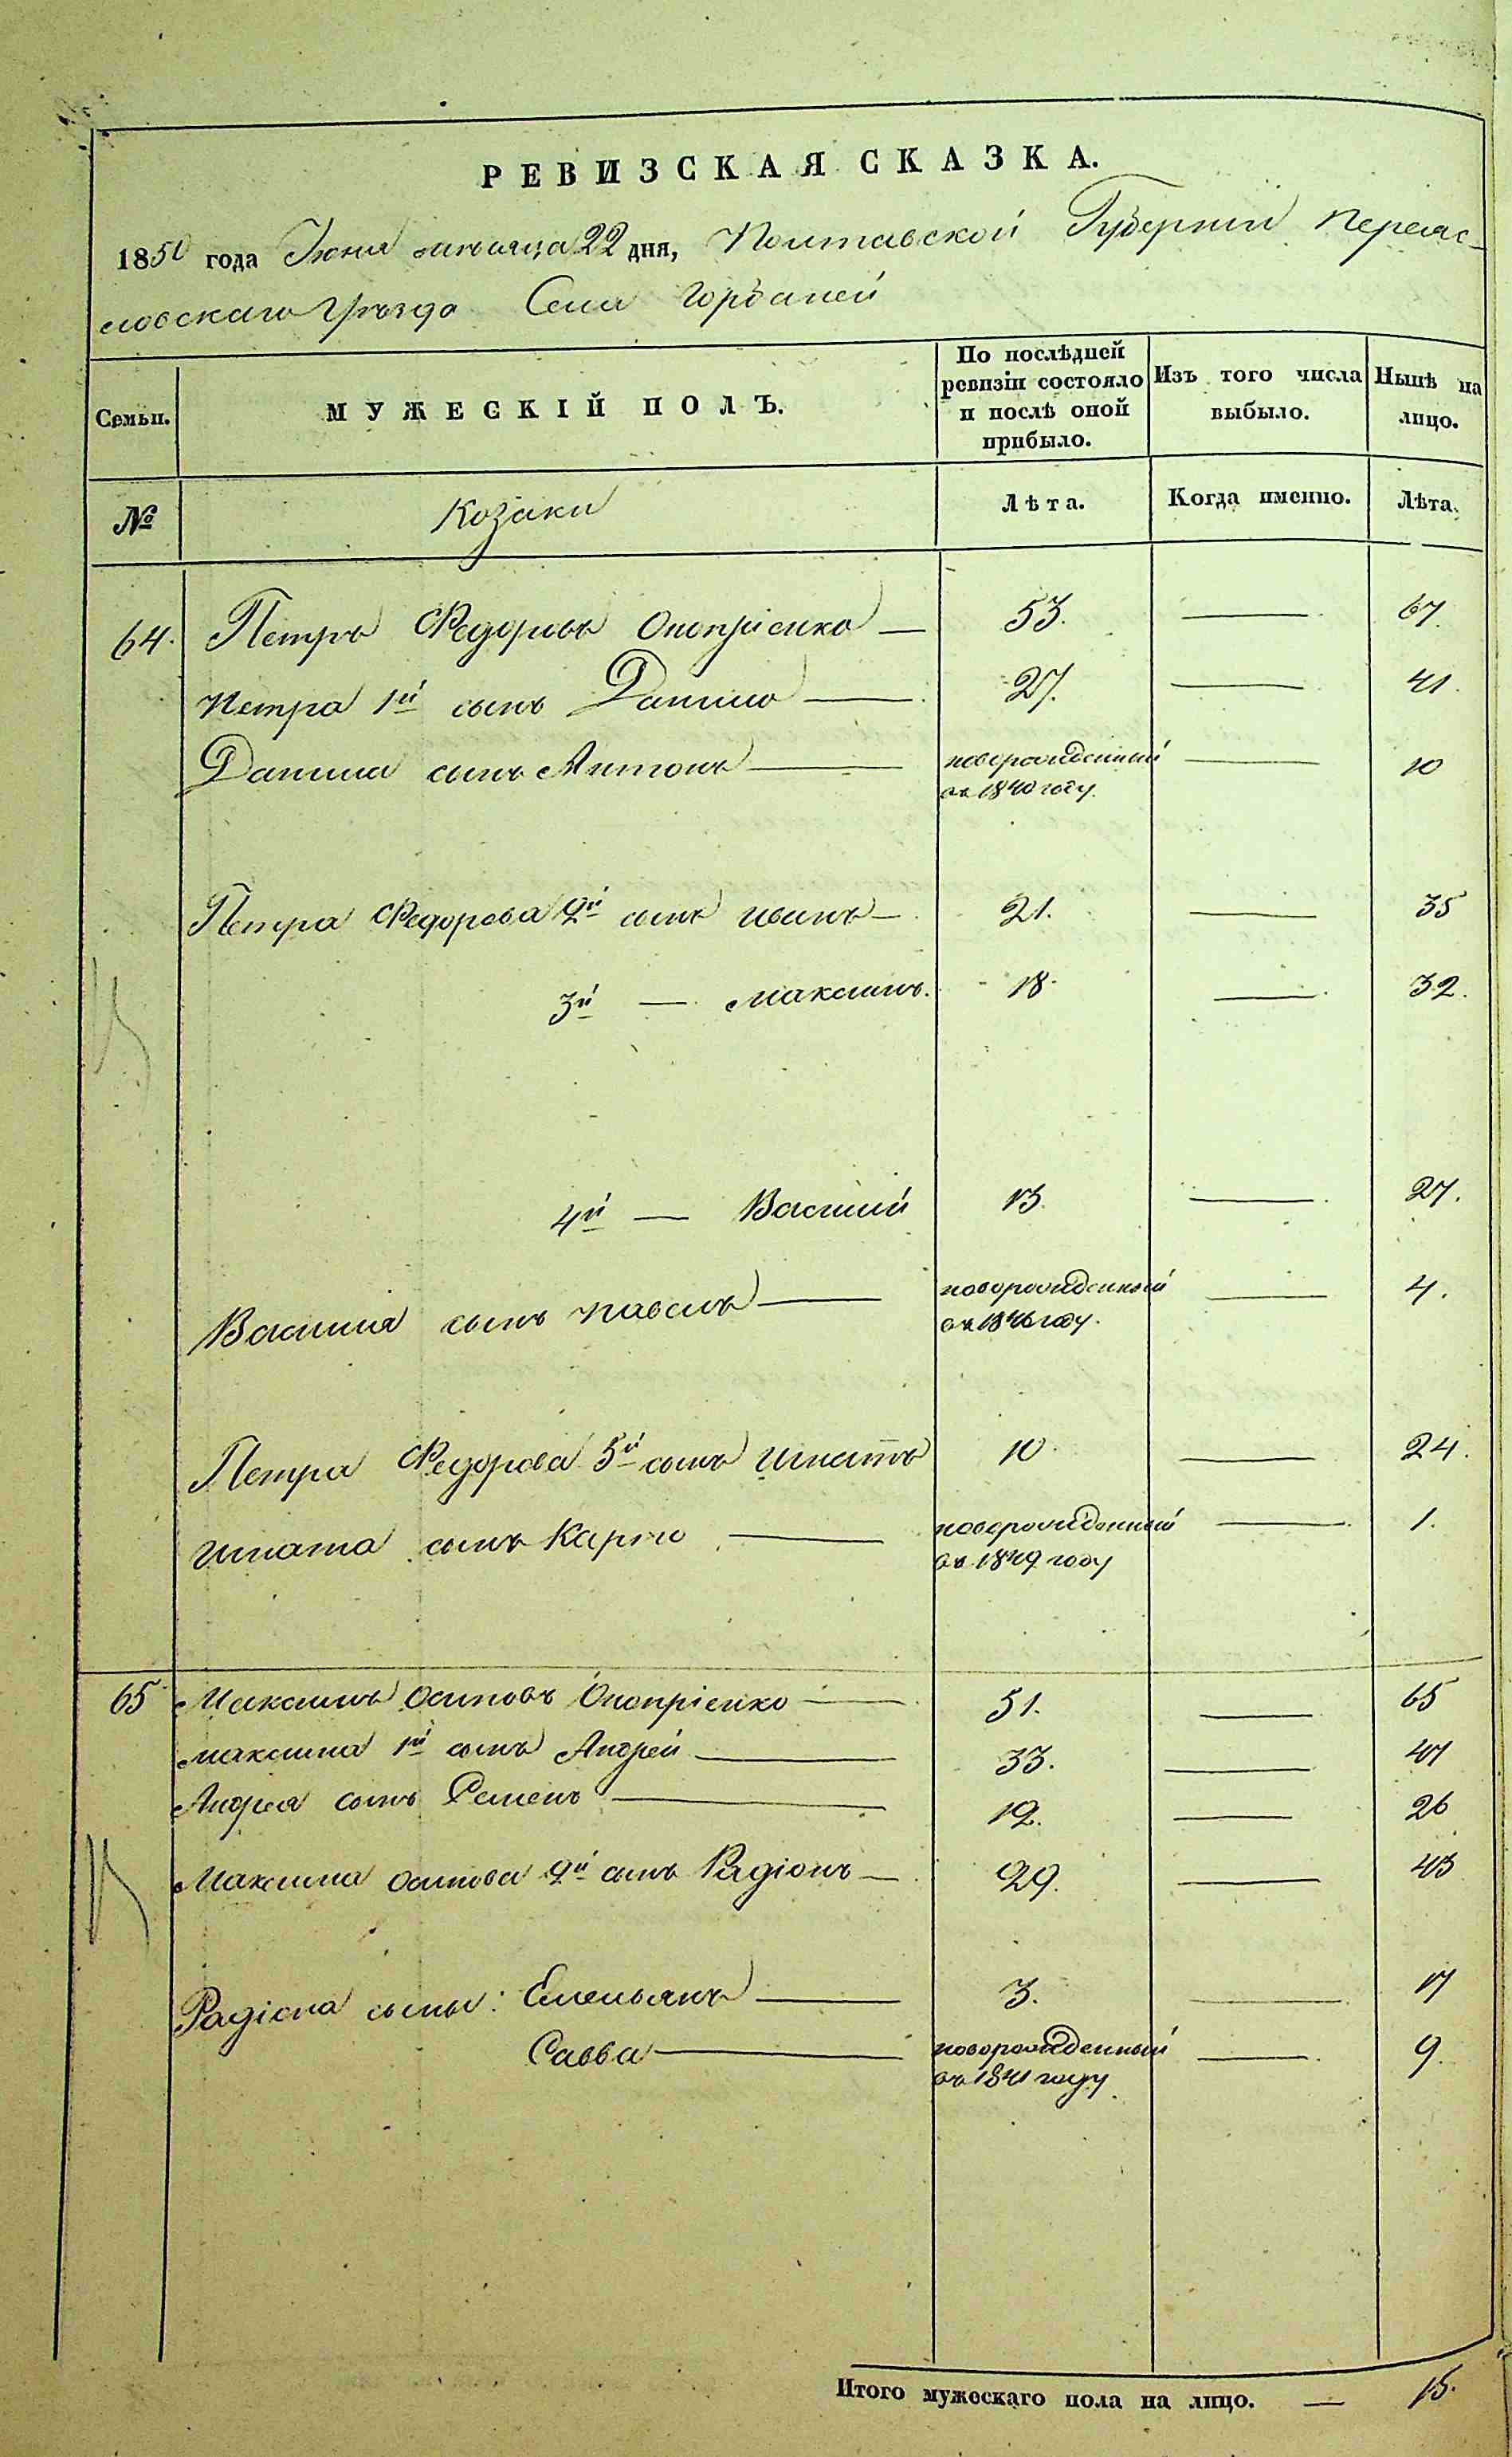 РЕВИЗСКАЯ СКАЗКА.
1850 года Июня месяца 22 дня, Полтавской Губернии Переяс-
ловскаго Уезда Села Горбаней
Семьи.
МУЖЕСКІЙ ПОЛЪ.
По послѣдней ревизіи состояло и послѣ оной прибыло.
Изъ того числа выбыло.
Нынѣ на лицо.
№ Козаки Лѣта. Когда именно. Лѣта.
64. Петръ Федоровъ Оноприенко — 53. — 67.
Петра 1й сынъ Данило — 27. — 41.
Данила сынъ Антонъ — новорожденный — 10
въ 1840 году.
Петра Федорова 2й сынъ Иванъ — 21. — 35
3й — Максимъ. 18. — 32.
4й — Василий 13. — 27.
Василия сынъ Павелъ — новорожденный — 4.
въ 1846 году.
Петра Федорова 5й сынъ Игнатъ 10. — 24.
Игната сынъ Карпо — новорожденный — 1.
въ 1849 году
65 Максимъ Осиповъ Оноприенко — 51. — 65
Максима 1й сынъ Андрей — 33. — 47
Андрея сынъ Семенъ — 12. — 26
Максима Осипова 2й сынъ Радіонъ — 29. — 43
Радіона сыны: Емельянъ — 3. — 17
Савва — новорожденный — 9.
въ 1841 году
Итого мужескаго пола на лицо. — 15.